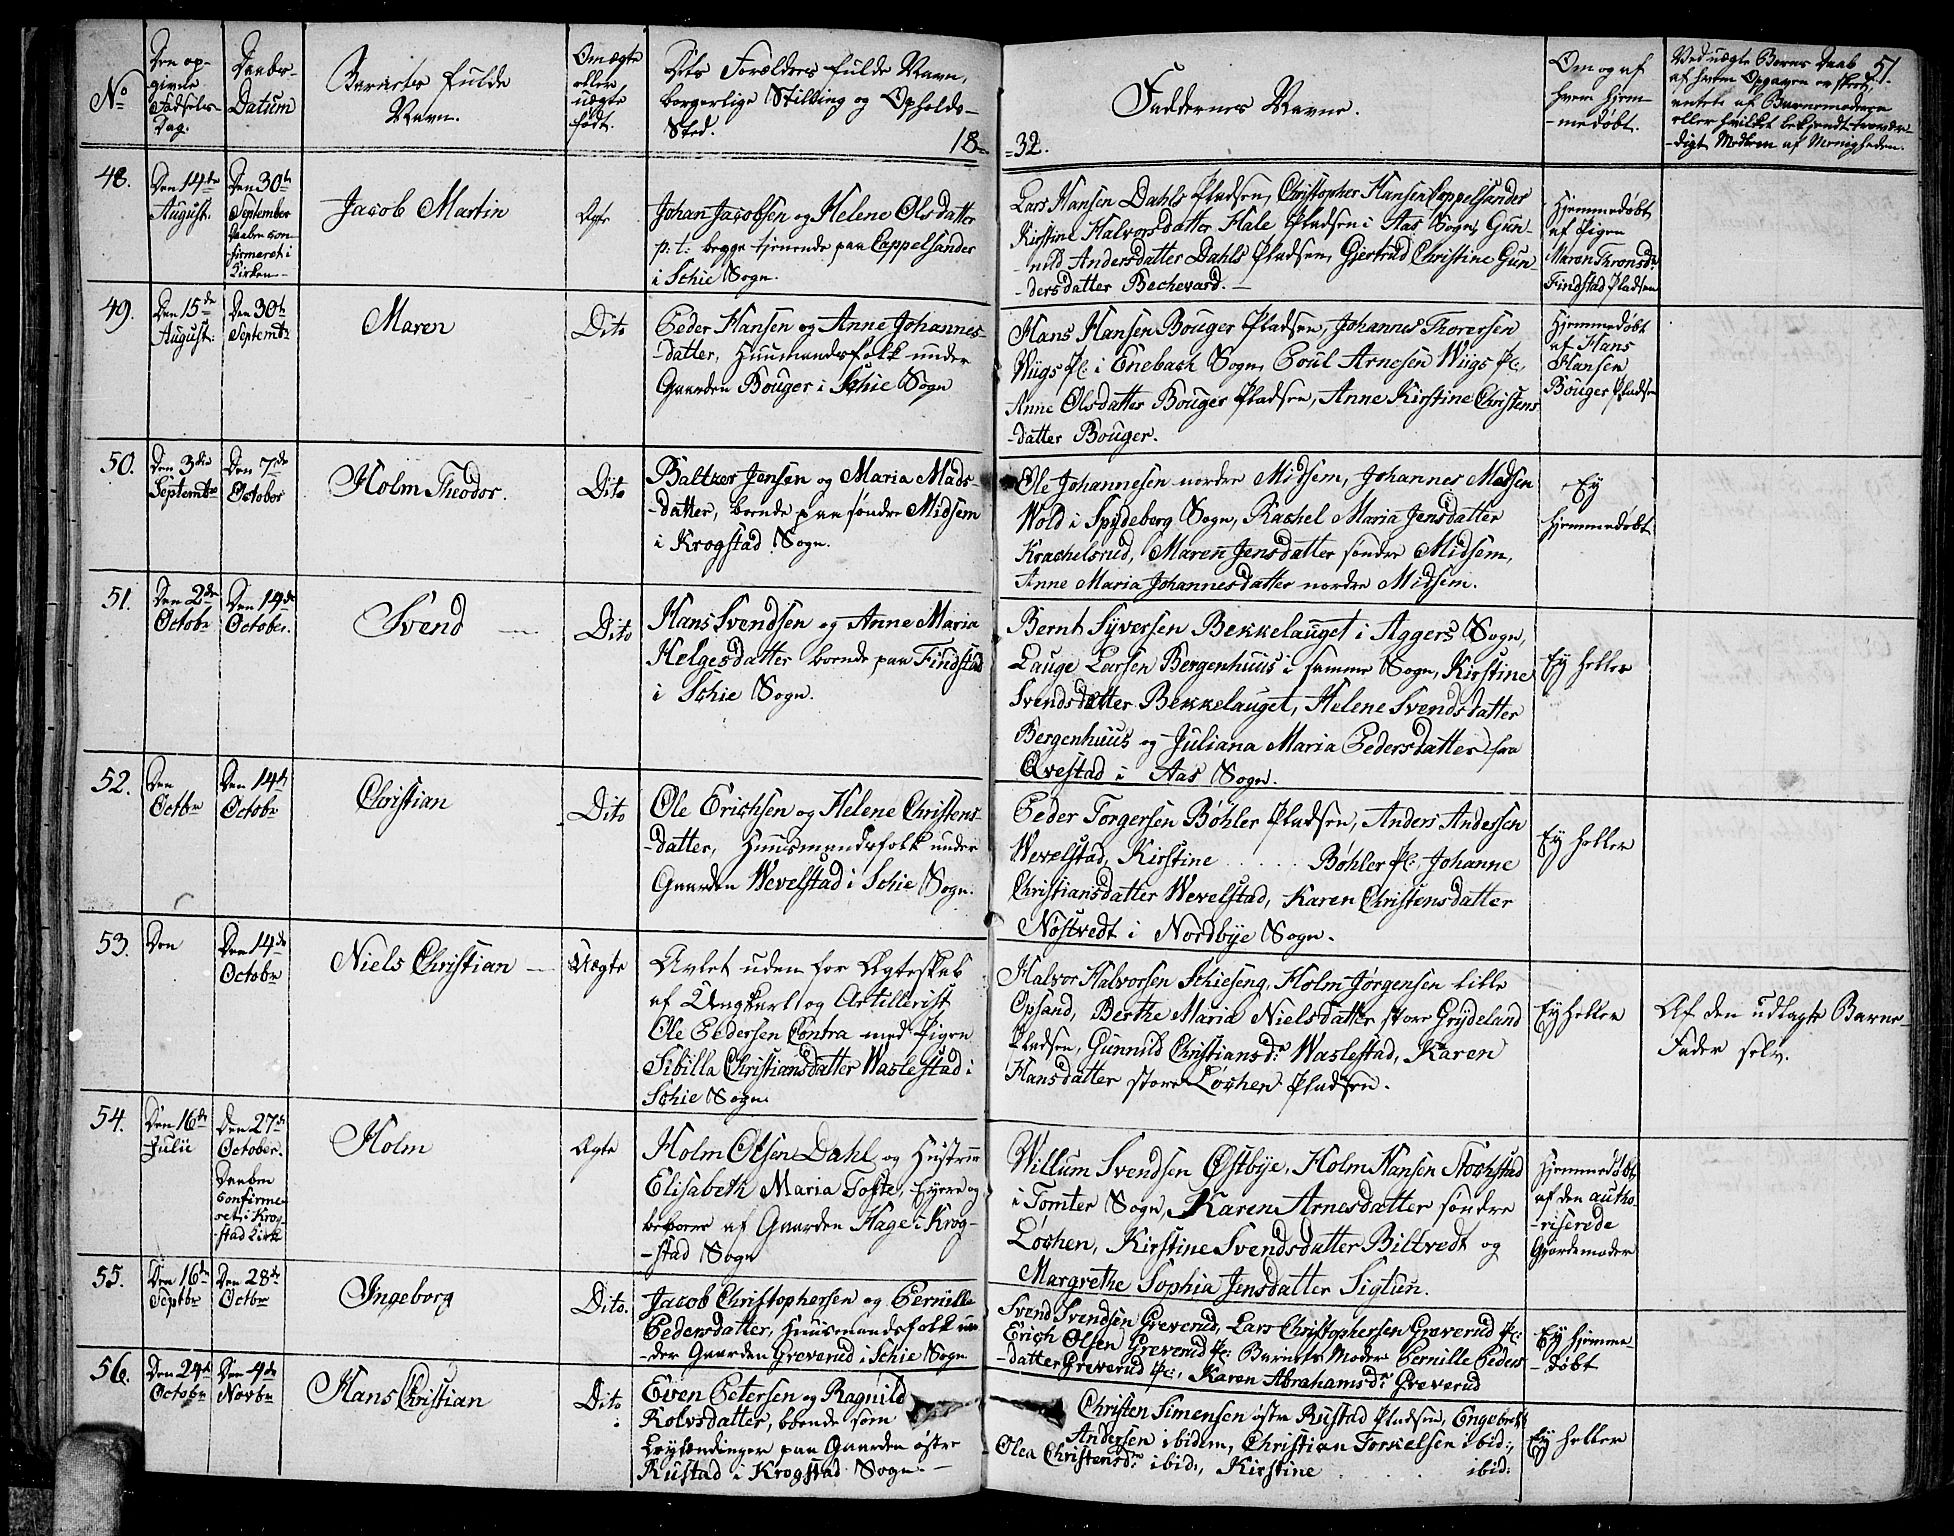 No
Den op-
givne
Fødsels-
Dag.
Daabs-
Datum
Barnets fulde
Navn.
Om ægte
eller
uægte
født.
Dets Forældres fulde Navn,
borgerlige Stilling og Opholds-
Sted.
18-
-32.
Faddernes Navne.
Om og af
hvem hjem-
-medøbt.
Ved uægte Børns Daab
af hvem Opgaven er skeet,
enten af Barnemoderen
eller hvilket bekjendt troevær-
-digt Medlem af Menigheden.
51.
48.
Den 14de
August.
Den 30te
September
Daaben con-
firmeret i
Kirken.-
Jacob Martin
Ægte
Johan Jacobsen og Helene Olsdatter
p: t: begge tjenende paa Cappelsander
i Schie Sogn.
Lars Hansen Dahls Pladsen, Christopher Hansen Cappelsander
Kirstine Halvorsdatter Hale Pladsen i Aas Sogn, Gun-
-nild Andersdatter Dahls Pladsen, Gjertrud Christine Gun-
dersdatter Bechevard.-
Hjemmedøbt
af Pigen
Maren Tronsdr
Findstad Pladsen
49.
Den 15de
August.
Den 30te
Septembr
Maren
Dito
Peder Hansen og Anne Johannes-
-datter, Huusmandsfolk under
Gaarden Bouger i Schie Sogn
Hans Hansen Bouger Pladsen, Johannes Thorersen
Wiigs Pl: i Enebach Sogn, Poul Arnesen Wiigs Pl:,
Anne Olsdatter Bouger Pladsen, Anne Kirstine Christens
-datter Bouger.
Hjemmedøbt
af Hans
Hansen
Bouger Pladsen
50.
Den 3die
Septembr
Den 7de
October
Holm Theodor.
Dito
Baltzer Jensen og Maria Mads
-datter, boende paa søndre Midsem
i Krogstad Sogn.
Ole Johannesen nordre Midsem, Johannes Madsen
Wold i Spydeberg Sogn, Rachel Maria Jensdatter
Krachelsrud, Maren Jensdatter søndre Midsem,
Anne Maria Johannesdatter nordre Midsem.
Ey
hjemmedøbt
51.
Den 2de
Octobr
Den 14de
October.
Svend
Dito
Hans Svendsen og Anne Maria
Helgesdatter boende paa Findstad
i Schie Sogn.
Bernt Syversen Bekkelauget i Aggers Sogn,
Lauge Larsen Bergenhuus i samme Sogn, Kirstine
Svendsdatter Bekkelauget, Helene Svendsdatter
Bergenhuus og Juliana Maria Pedersdatter fra
Qvestad i Aas Sogn.
Ey heller
52.
Den
Octbr
Den 14de
Octobr
Christian
Dito
Ole Erichsen og Helene Christens-
-datter, Huusmandsfolk under
Gaarden Wevelstad i Schie Sogn.
Peder Torgersen Bøhler Pladsen, Anders Andersen
Wevelstad, Kirstine ..... Bøhler Pl: Johanne
Christiansdatter Wevelstad, Karen Christensdatter
Nøstvedt i Nordbye Sogn.
Ey heller
53.
Den
Den 14de
Octobr
Niels Christian
Uægte
Avlet uden for Ægteskab
af Ungkarl og Artillerist
Ole Pedersen Contra med Pigen
Sibilla Christiansdatter Waslestad i
Schie Sogn.
Halvor Halvorsen Schieseng, Holm Jørgensen lille
Opsand, Berthe Maria Nielsdatter store Grydeland
Pladsen, Gunnild Christiansdr Waslestad, Karen
Hansdatter store Løchen Pladsen.
Ey heller
Af den udlagte Barne-
Fader selv.
54.
Den 16de
Julii
Den 27de
October.
Daaben
Confirme-
ret i Krog-
stad Kirke
Holm
Ægte
Holm Olsen Dahl og Hustrue
Elisabeth Maria Tofte, Eyere og
beboere af Gaarden Hage i Krog-
-stad Sogn
Willum Svendsen Østbye, Holm Hansen Stochstad
i Tomter Sogn, Karen Arnesdatter søndre
Løchen, Kirstine Svendsdatter Biltvedt og
Margrethe Sophia Jensdatter Siglun.
Hjemmedøbt
af den autho-
-riserede
Gjordemoder
55.
Den 16de
Septbr
Den 28de
Octbr
Ingeborg
Dito.
Jacob Christophersen og Pernille
Pedersdatter, Huusmandsfolk un-
-der Gaarden Greverud i Schie Sogn
Svend Svendsen Greverud, Lars Christophersen Greverud Pl:
Erich Olsen Greverud Pl: Barnets Moder Pernille Peders
-datter Greverud Pl:, Karen Abrahamsdr Greverud
Ey hjemme
-døbt
56.
Den 24de
Octobr
Den 4de
Novbr
Hans Christian
Dito
Even Petersen og Ragnild
Rolvsdatter, boende som
Leylændinger paa Gaarden østre
Rustad i Krogstad Sogn.-
Christen Simensen østre Rustad Pladsen, Engebret
Andersen ibidem, Christian Torkelsen ibid:,
Olea Christensdr ibid:, Kirstine ..... ibid:
Ey heller